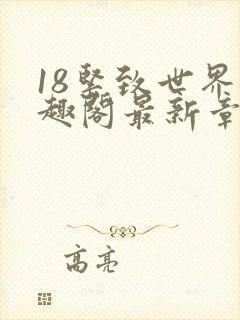 18坚致世界
趣阁最新章
高亮